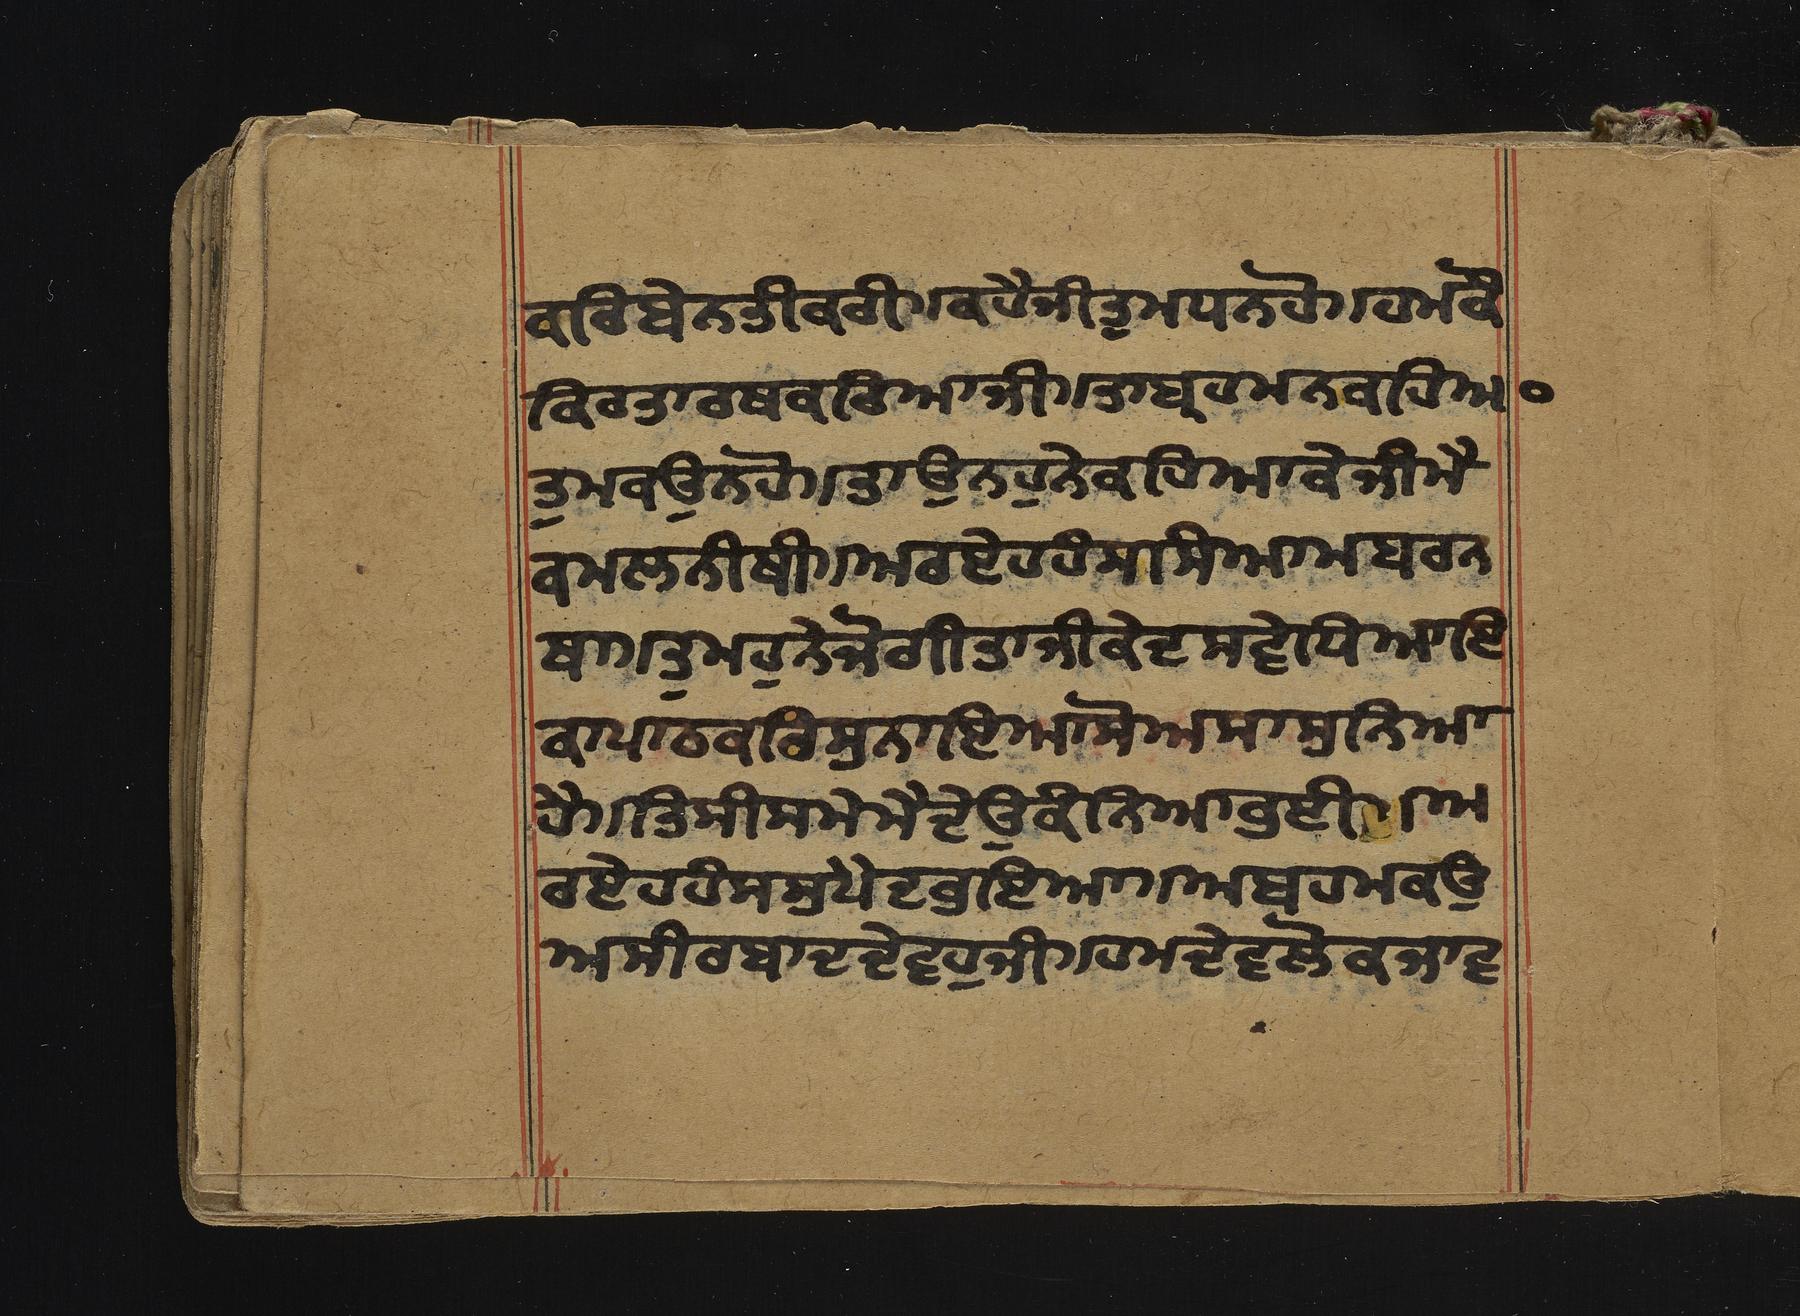 ਕਰਿਬੇਨਤੀਕਰੀ।ਕਹੈਜੀਤੁਮਧਨਹੋ।ਹਮਕੌ
ਕਿਰਤਾਰਥਕਰਿਆਜੀ।ਤਾਬ੍ਰਹਮਨਕਹਿਅ੦
ਤੁਮਕਉਨਹੋ।ਤਾਉਨਹੁਨੇਕਹਿਆਕੇਜੀਮੈ
ਕਮਲਨੀਥੀ।ਅਰਏਹਹੀਸਾਸਿਆਅਬਰਨ
ਥਾ।ਤੁਮਹੁਨੇਜੋਗੀਤਾਜੀਕੇਦਸਵੇਧਿਆਇ
ਕਾਪਾਠਕਰਿਸੁਨਾਇਆਸੋਅਸਾਸੁਨਿਆ
ਹੈ।ਤਿਸੀਸਮੇਮੈਦੇਉਕੰਨਿਆਭੁਈ।ਅ
ਰਏਹਹੀਸਸੁਪੇਦਭੁਇਆ।ਅਬਹਮਕਉ
ਅਸੀਰਬਾਦਦੇਵਹੁਜੀ।ਹਮਦੇਵਲੋਕਜਾਵ